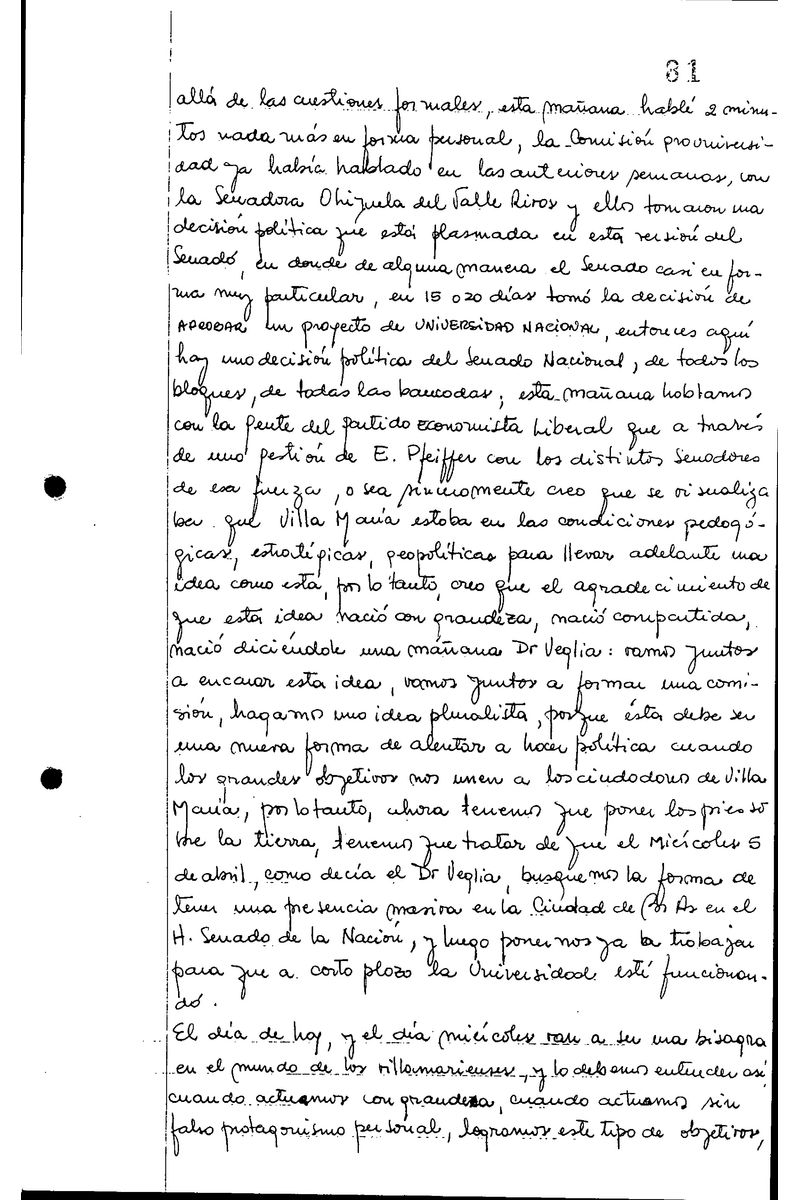 81
allá de las cuestiones formales, esta mañana hablé 2 minu-
tos nada más en forma personal, la Comisión prouniversi-
dad ya había hablado en las anteriores semanas, con
la Senadora Ohizuela del Valle Rivos y ellos tomaron una
decisión política que está plasmada en esta versión del
Senado, en donde de alguna manera el Senado casi en for-
ma muy particular, en 15 o 20 días tomó la decisión de
APROBAR un proyecto de UNIVERSIDAD NACIONAL, entonces aquí
hay una decisión política del Senado Nacional, de todos los
bloques, de todas las bancadas, esta mañana hablamos
con la gente del partido Economista Liberal que a través
de una gestión de E. Pfeiffer con los distintos Senadores
de esa fuerza, o sea sinceramente creo que se visualiza
ba que Villa María estaba en las condiciones pedagó-
gicas, estratégicas, geopolíticas para llevar adelante una
idea como esta, por lo tanto, creo que el agradecimiento de
que esta idea nació con grandeza, nació compartida,
nació diciéndole una mañana Dr Veglia: vamos juntos
a encarar esta idea, vamos juntos a formar una comi-
sión, hagamos una idea pluralista, porque ésta debe ser
una nueva forma de alentar a hacer política cuando
los grandes objetivos nos unen a los ciudadanos de Villa
María, por lo tanto, ahora tenemos que poner los pies so
bre la tierra, tenemos que tratar de que el Miércoles 5
de abril, como decía el Dr Veglia, busquemos la forma de
tener una presencia masiva en la Ciudad de Bs As en el
H. Senado de la Nación, y luego ponernos ya a trabajar
para que a corto plazo la Universidad esté funcionan-
do.
El día de hoy, y el día miércoles van a ser una bisagra
en el mundo de los villamarienses, y lo debemos entender así,
cuando actuamos con grandeza, cuando actuamos sin
falso protagonismo personal, logramos este tipo de objetivos,